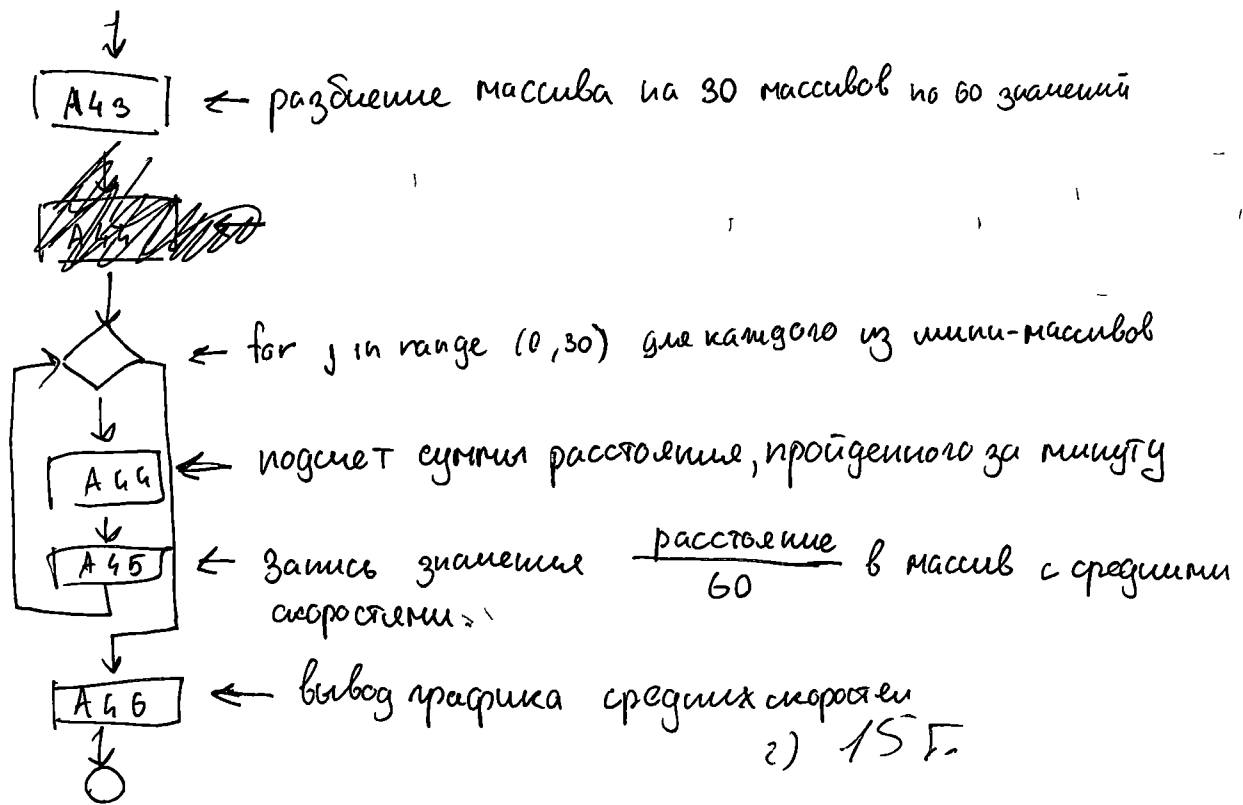 A43 ← разбиение массива на 30 массивов по 60 значений
← for j in range (0,30) для каждого из мини-массивов
A44 ← подсчет суммы расстояния, пройденного за минуту
A45 ← Запись значения расстояние/60 в массив с средними
скоростями.
A46 ← вывод графика средних скоростей
г) 15 Б.